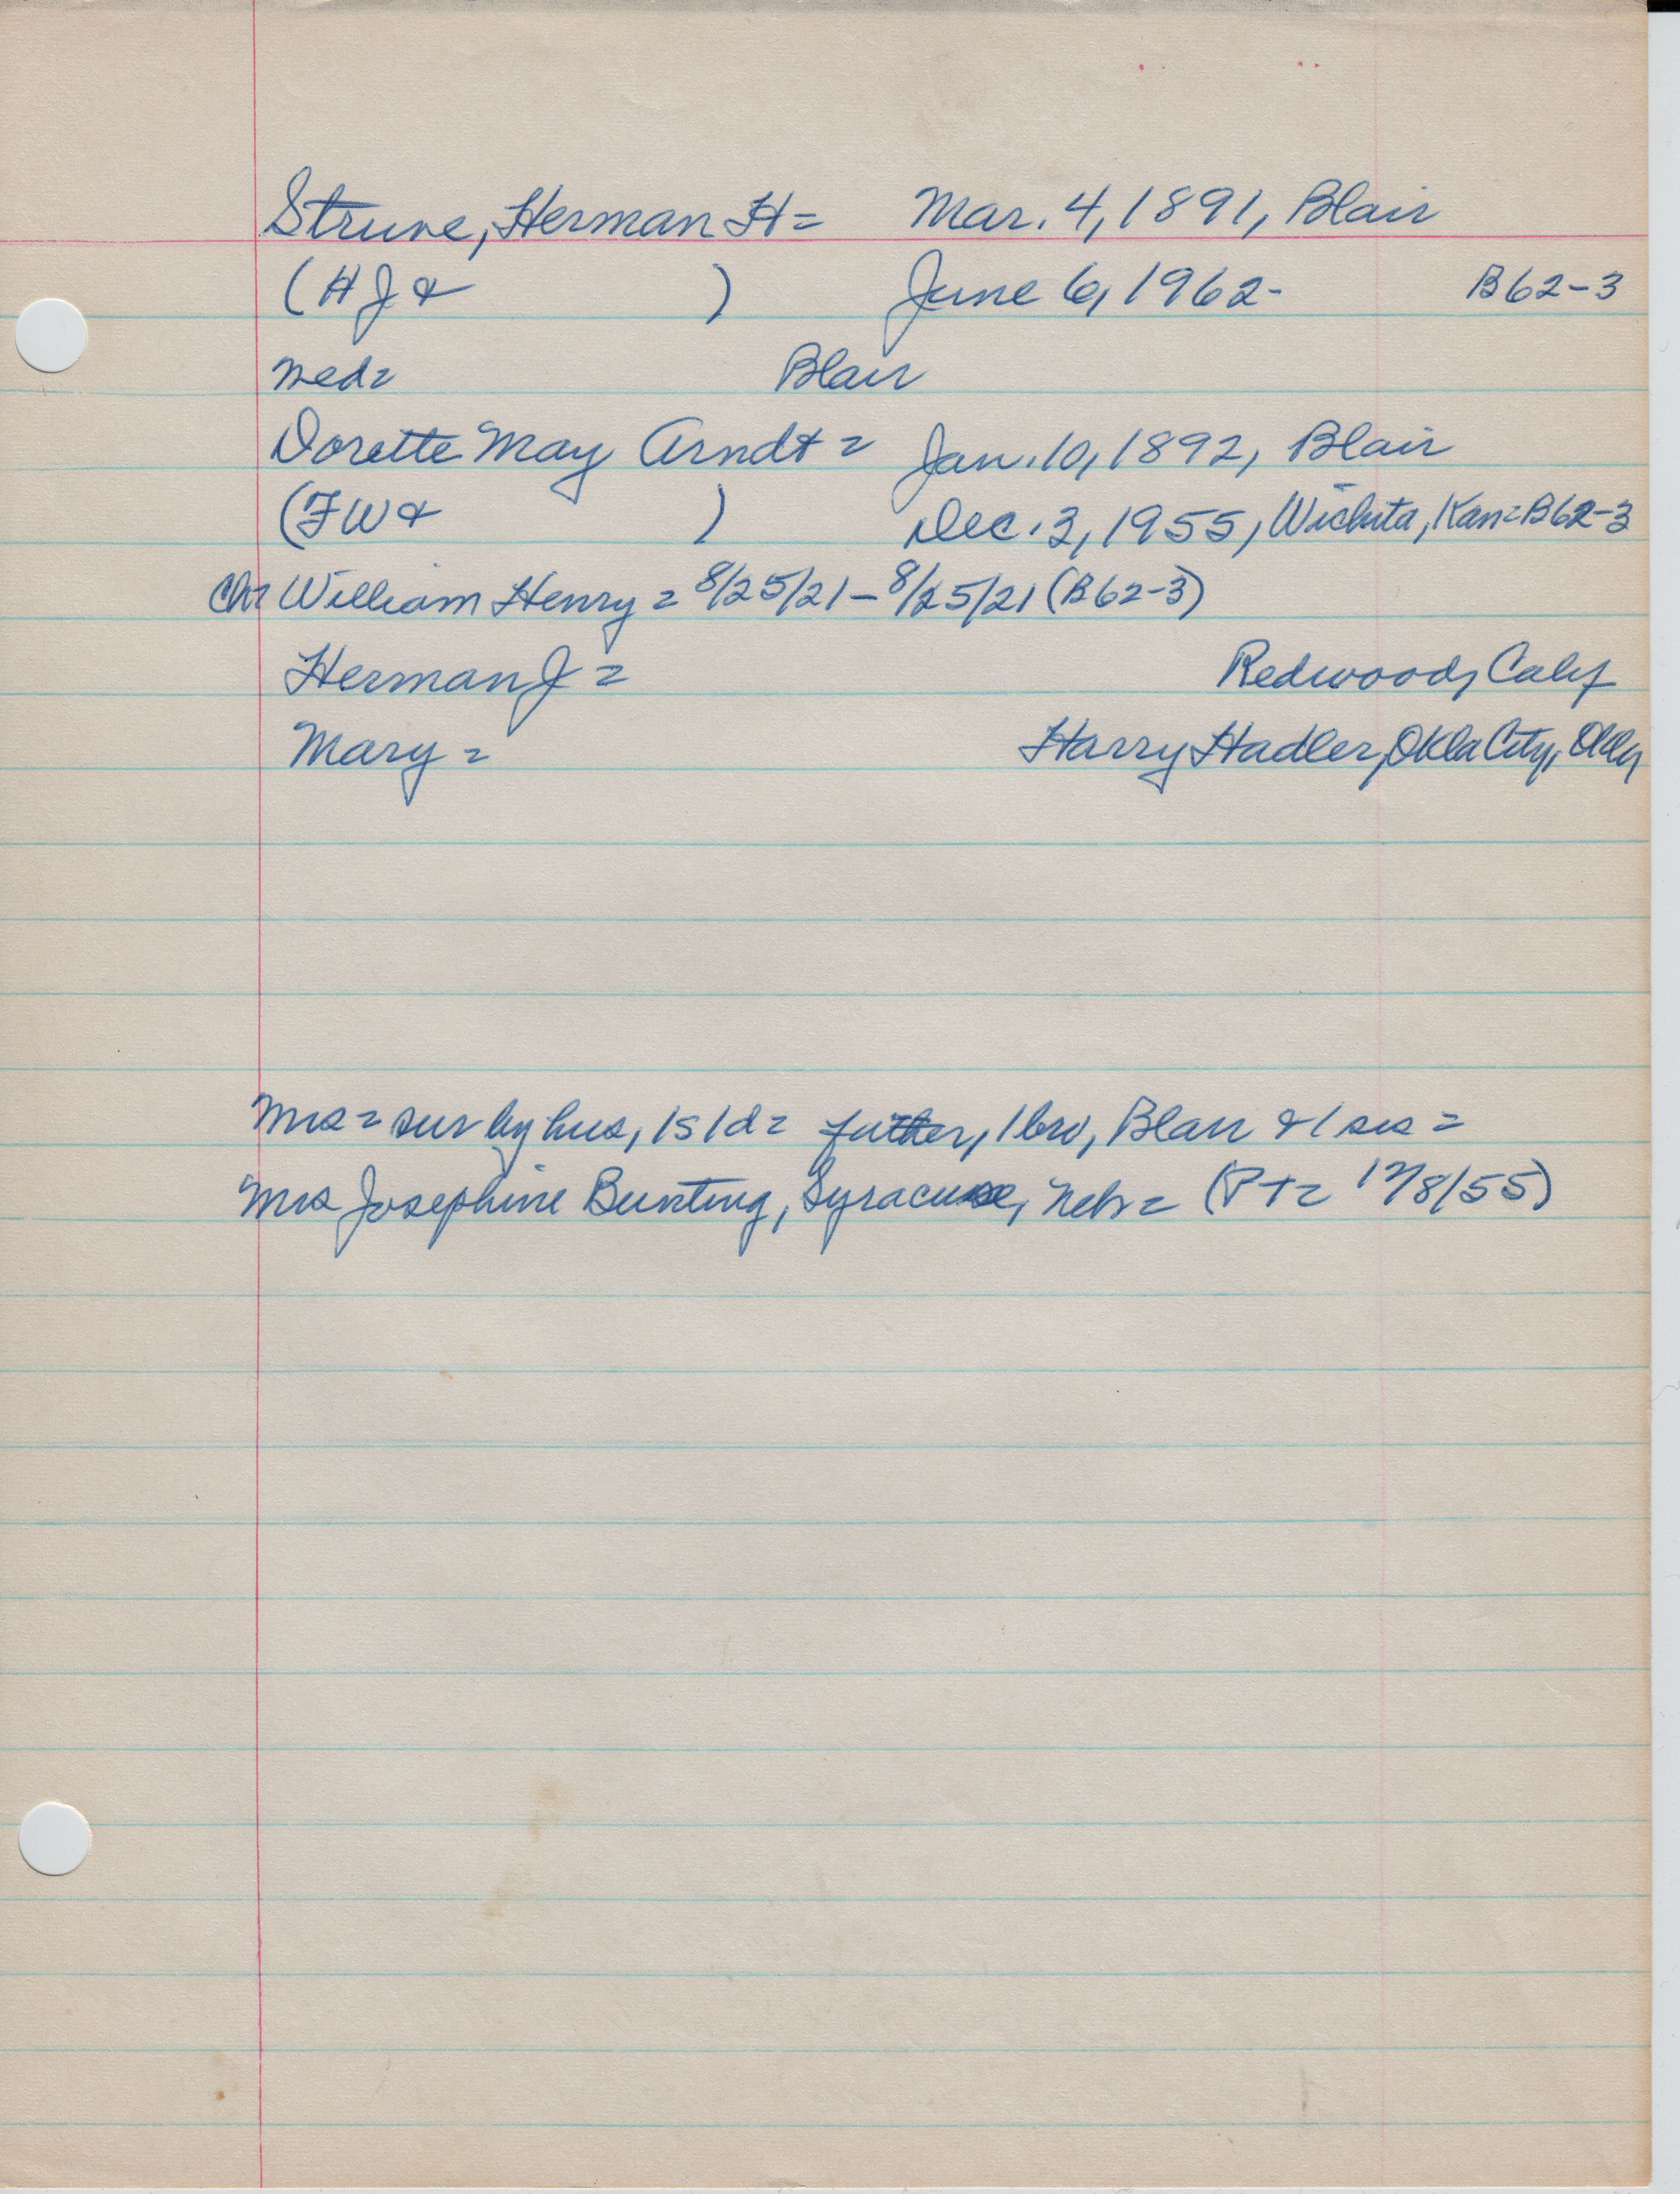 Struve, Herman H = Mar. 4, 1891, Blair
(H J & ) June 6, 1962 - B62-3
Med = Blair
Dorette May Arndt = Jan. 10, 1892, Blair
(F W & ) Dec. 3, 1955, Wichita, Kan = B62-3
Ch = William Henry = 8/25/21 - 8/25/21 (B62-3)
Herman J = Redwood, Calif
Mary = Harry Hadler, Okla City, Okla
Mrs = sur by hus, 1s 1d = father, 1 bro, Blair & 1 sis =
Mrs Josephine Bunting, Syracuse, Neb = (P+ = 12/8/55)